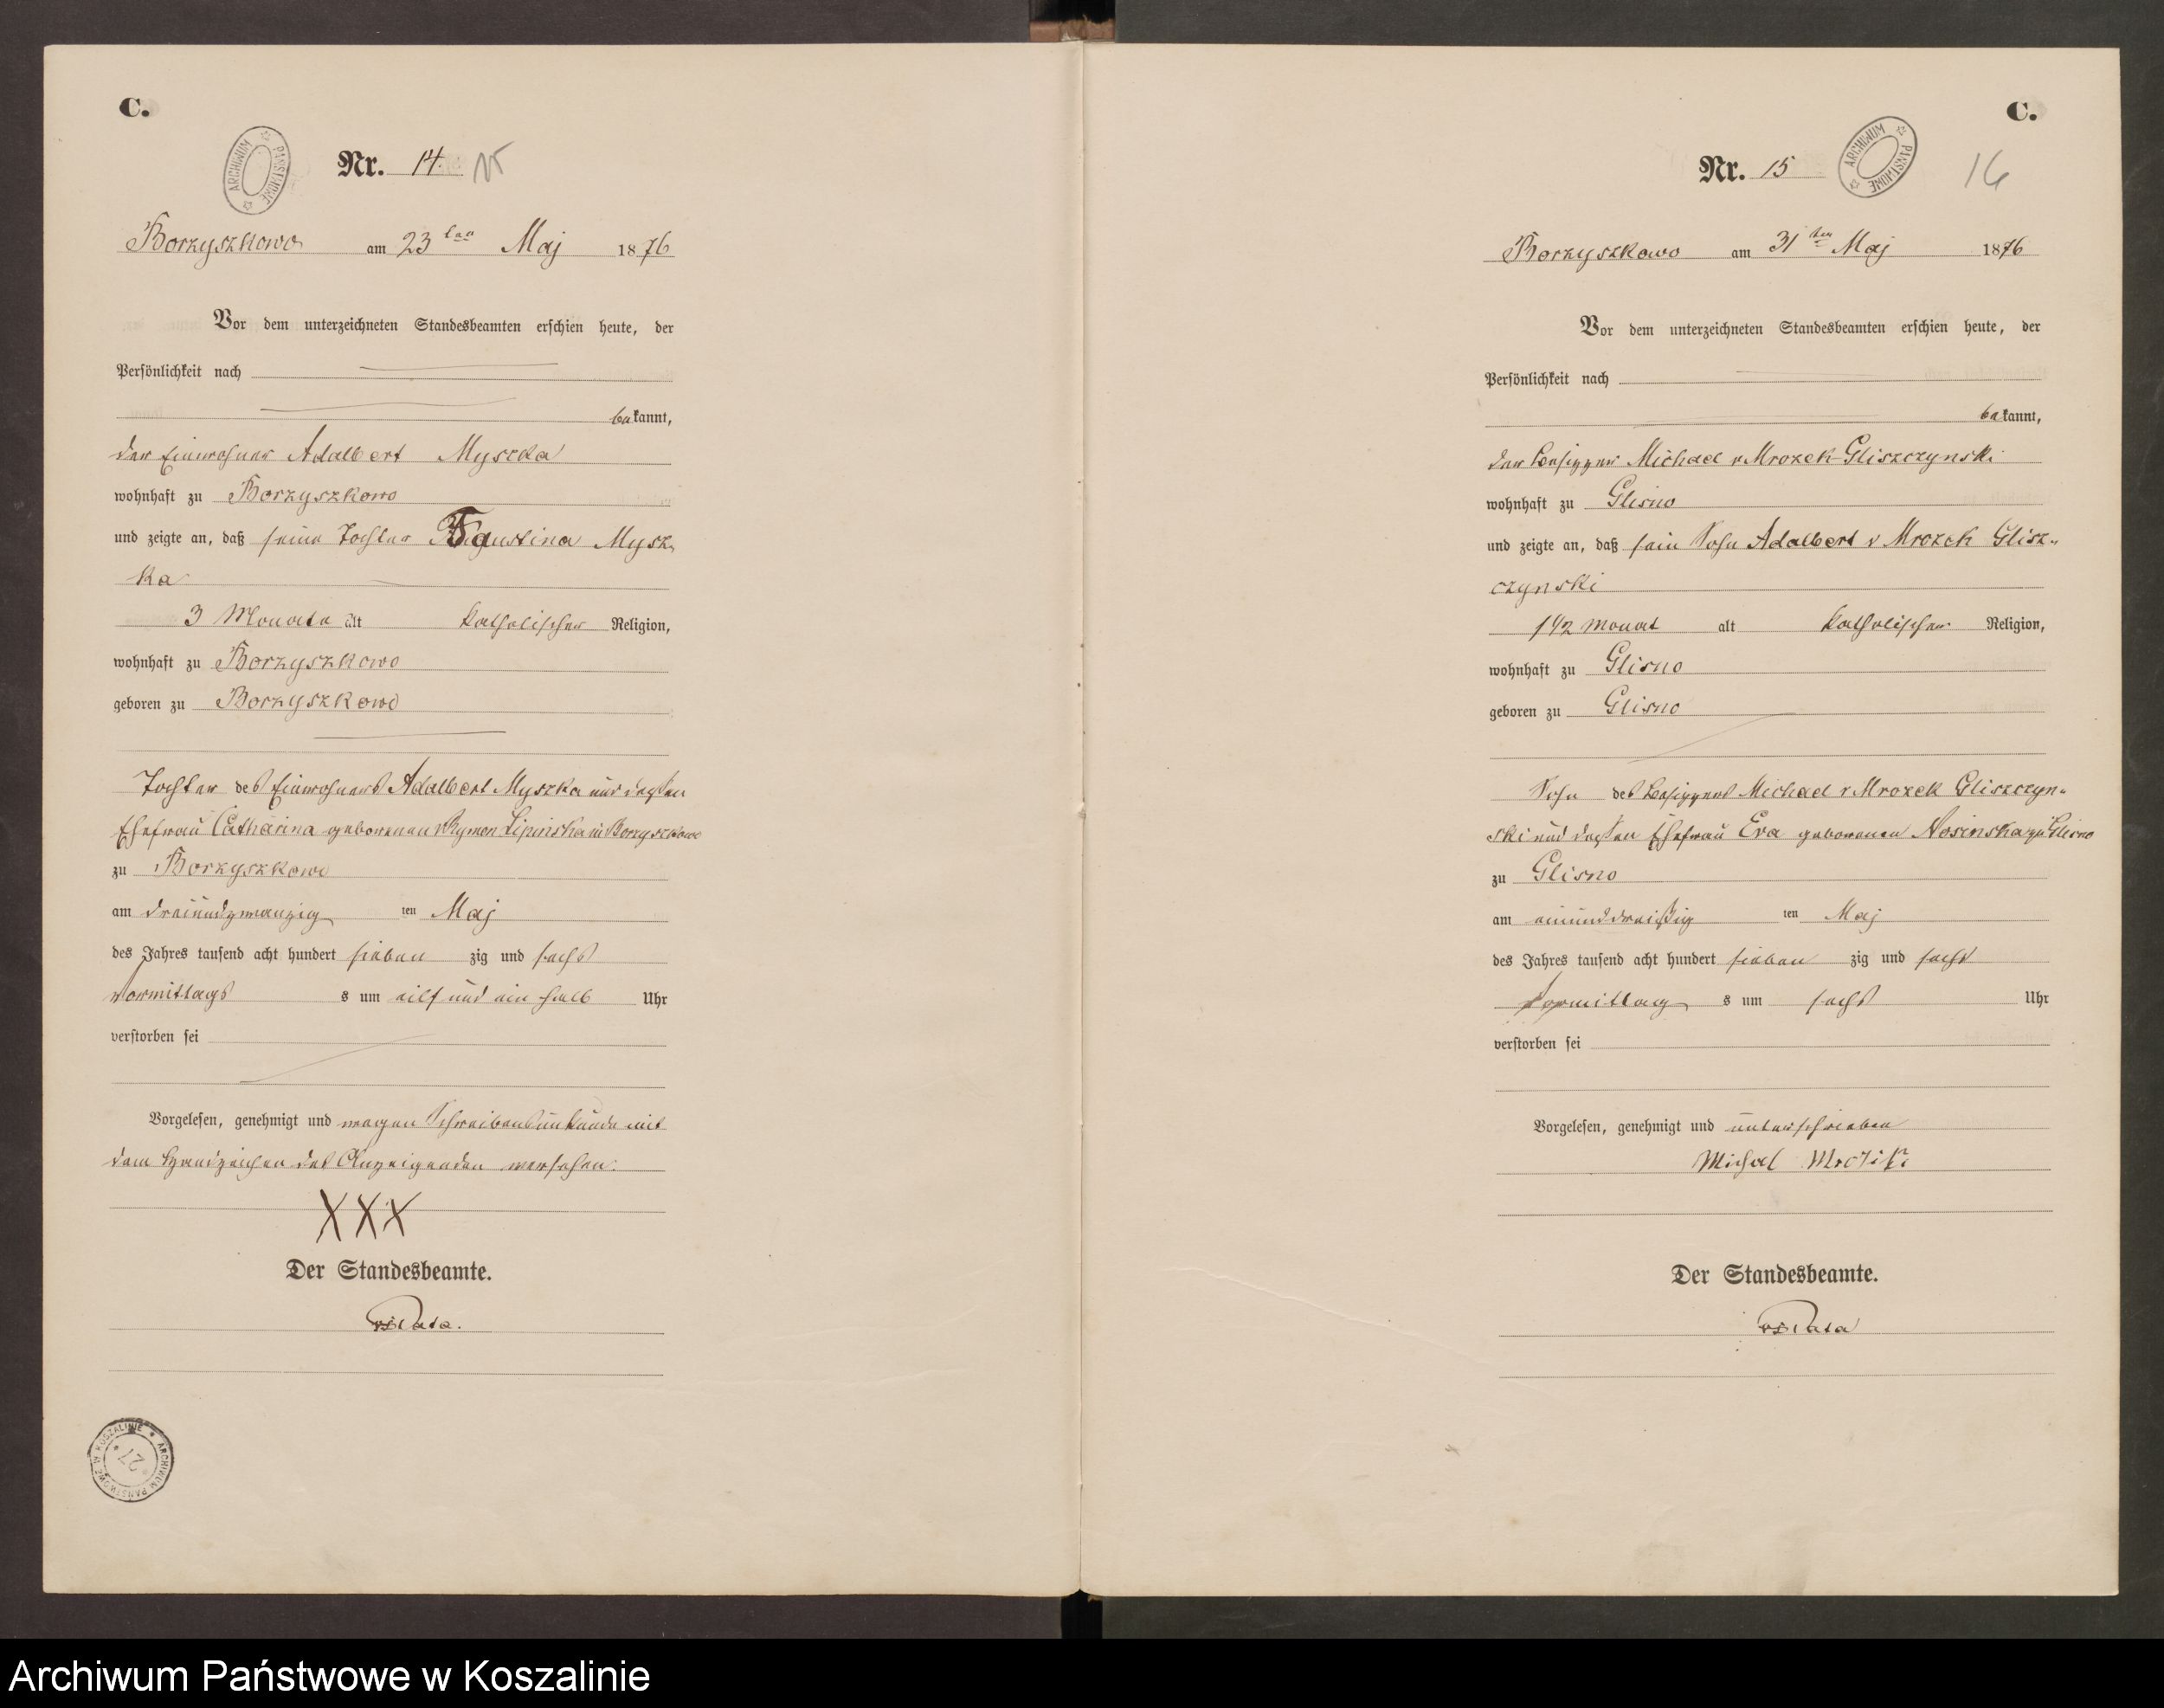 C.
ARCHIWUM PAŃSTWOWE
Nr. 14. 15
Borzyszkowo am 23 ten Maj 1876
Vor dem unterzeichneten Standesbeamten erschien heute, der
Persönlichkeit nach
bekannt,
der Einwohner Adalbert Myszka
wohnhaft zu Borzyszkowo
und zeigte an, daß seine Tochter Augustina Mysz-
ka
3 Monate alt katholischer Religion,
wohnhaft zu Borzyszkowo
geboren zu Borzyszkowo
Tochter des Einwohners Adalbert Myszka und dessen
Ehefrau Catharina geborenen Lipinska in Borzyszkowo
zu Borzyszkowo
am dreiundzwanzig ten Maj
des Jahres tausend acht hundert sieben zig und sechs
vormittags s um eilf und ein halb Uhr
verstorben sei
Vorgelesen, genehmigt und wegen Schreibensunkunde mit
dem Handzeichen des Anzeigenden versehen.
XXX
Der Standesbeamte.
ARCHIWUM PAŃSTWOWE W KOSZALINIE
27
C.
ARCHIWUM PAŃSTWOWE
Nr. 15 16
Borzyszkowo am 31 ten Maj 1876
Vor dem unterzeichneten Standesbeamten erschien heute, der
Persönlichkeit nach
bekannt,
der Besitzer Michael v Mrozek Gliszczynski
wohnhaft zu Glisno
und zeigte an, daß sein Sohn Adalbert v Mrozek Glisz-
czynski
1 1/2 Monat alt katholischer Religion,
wohnhaft zu Glisno
geboren zu Glisno
Sohn des Besitzers Michael v Mrozek Gliszczyn-
ski und dessen Ehefrau Eva geborenen Nosinska zu Glisno
zu Glisno
am einunddreißig ten Maj
des Jahres tausend acht hundert sieben zig und sechs
Vormittag s um sechs Uhr
verstorben sei
Vorgelesen, genehmigt und unterschrieben
Michael
Der Standesbeamte.
Archiwum Państwowe w Koszalinie